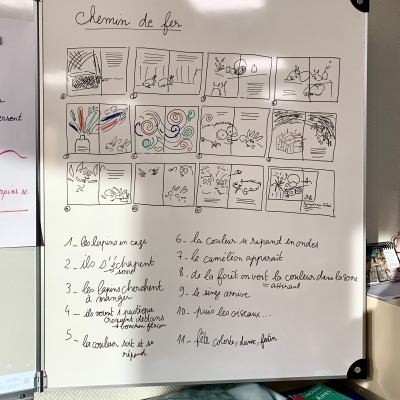 chemin de fer
1 - les lapins en cage
2 - ils s'échapent
→ sond
3 - les lapins cherchent
à manger
4 - ils voient 1 pastèque
croquent dedans
→ bouchon flacon
5 - la couleur sort et se
répand
6 - la couleur se répand en ondes
7 - le caméléon apparait
8 - de la forêt on voit la couleur dans la zone
= attirant
9 - le singe arrive
10 - puis les oiseaux...
11 - fête colorée, danse, festin